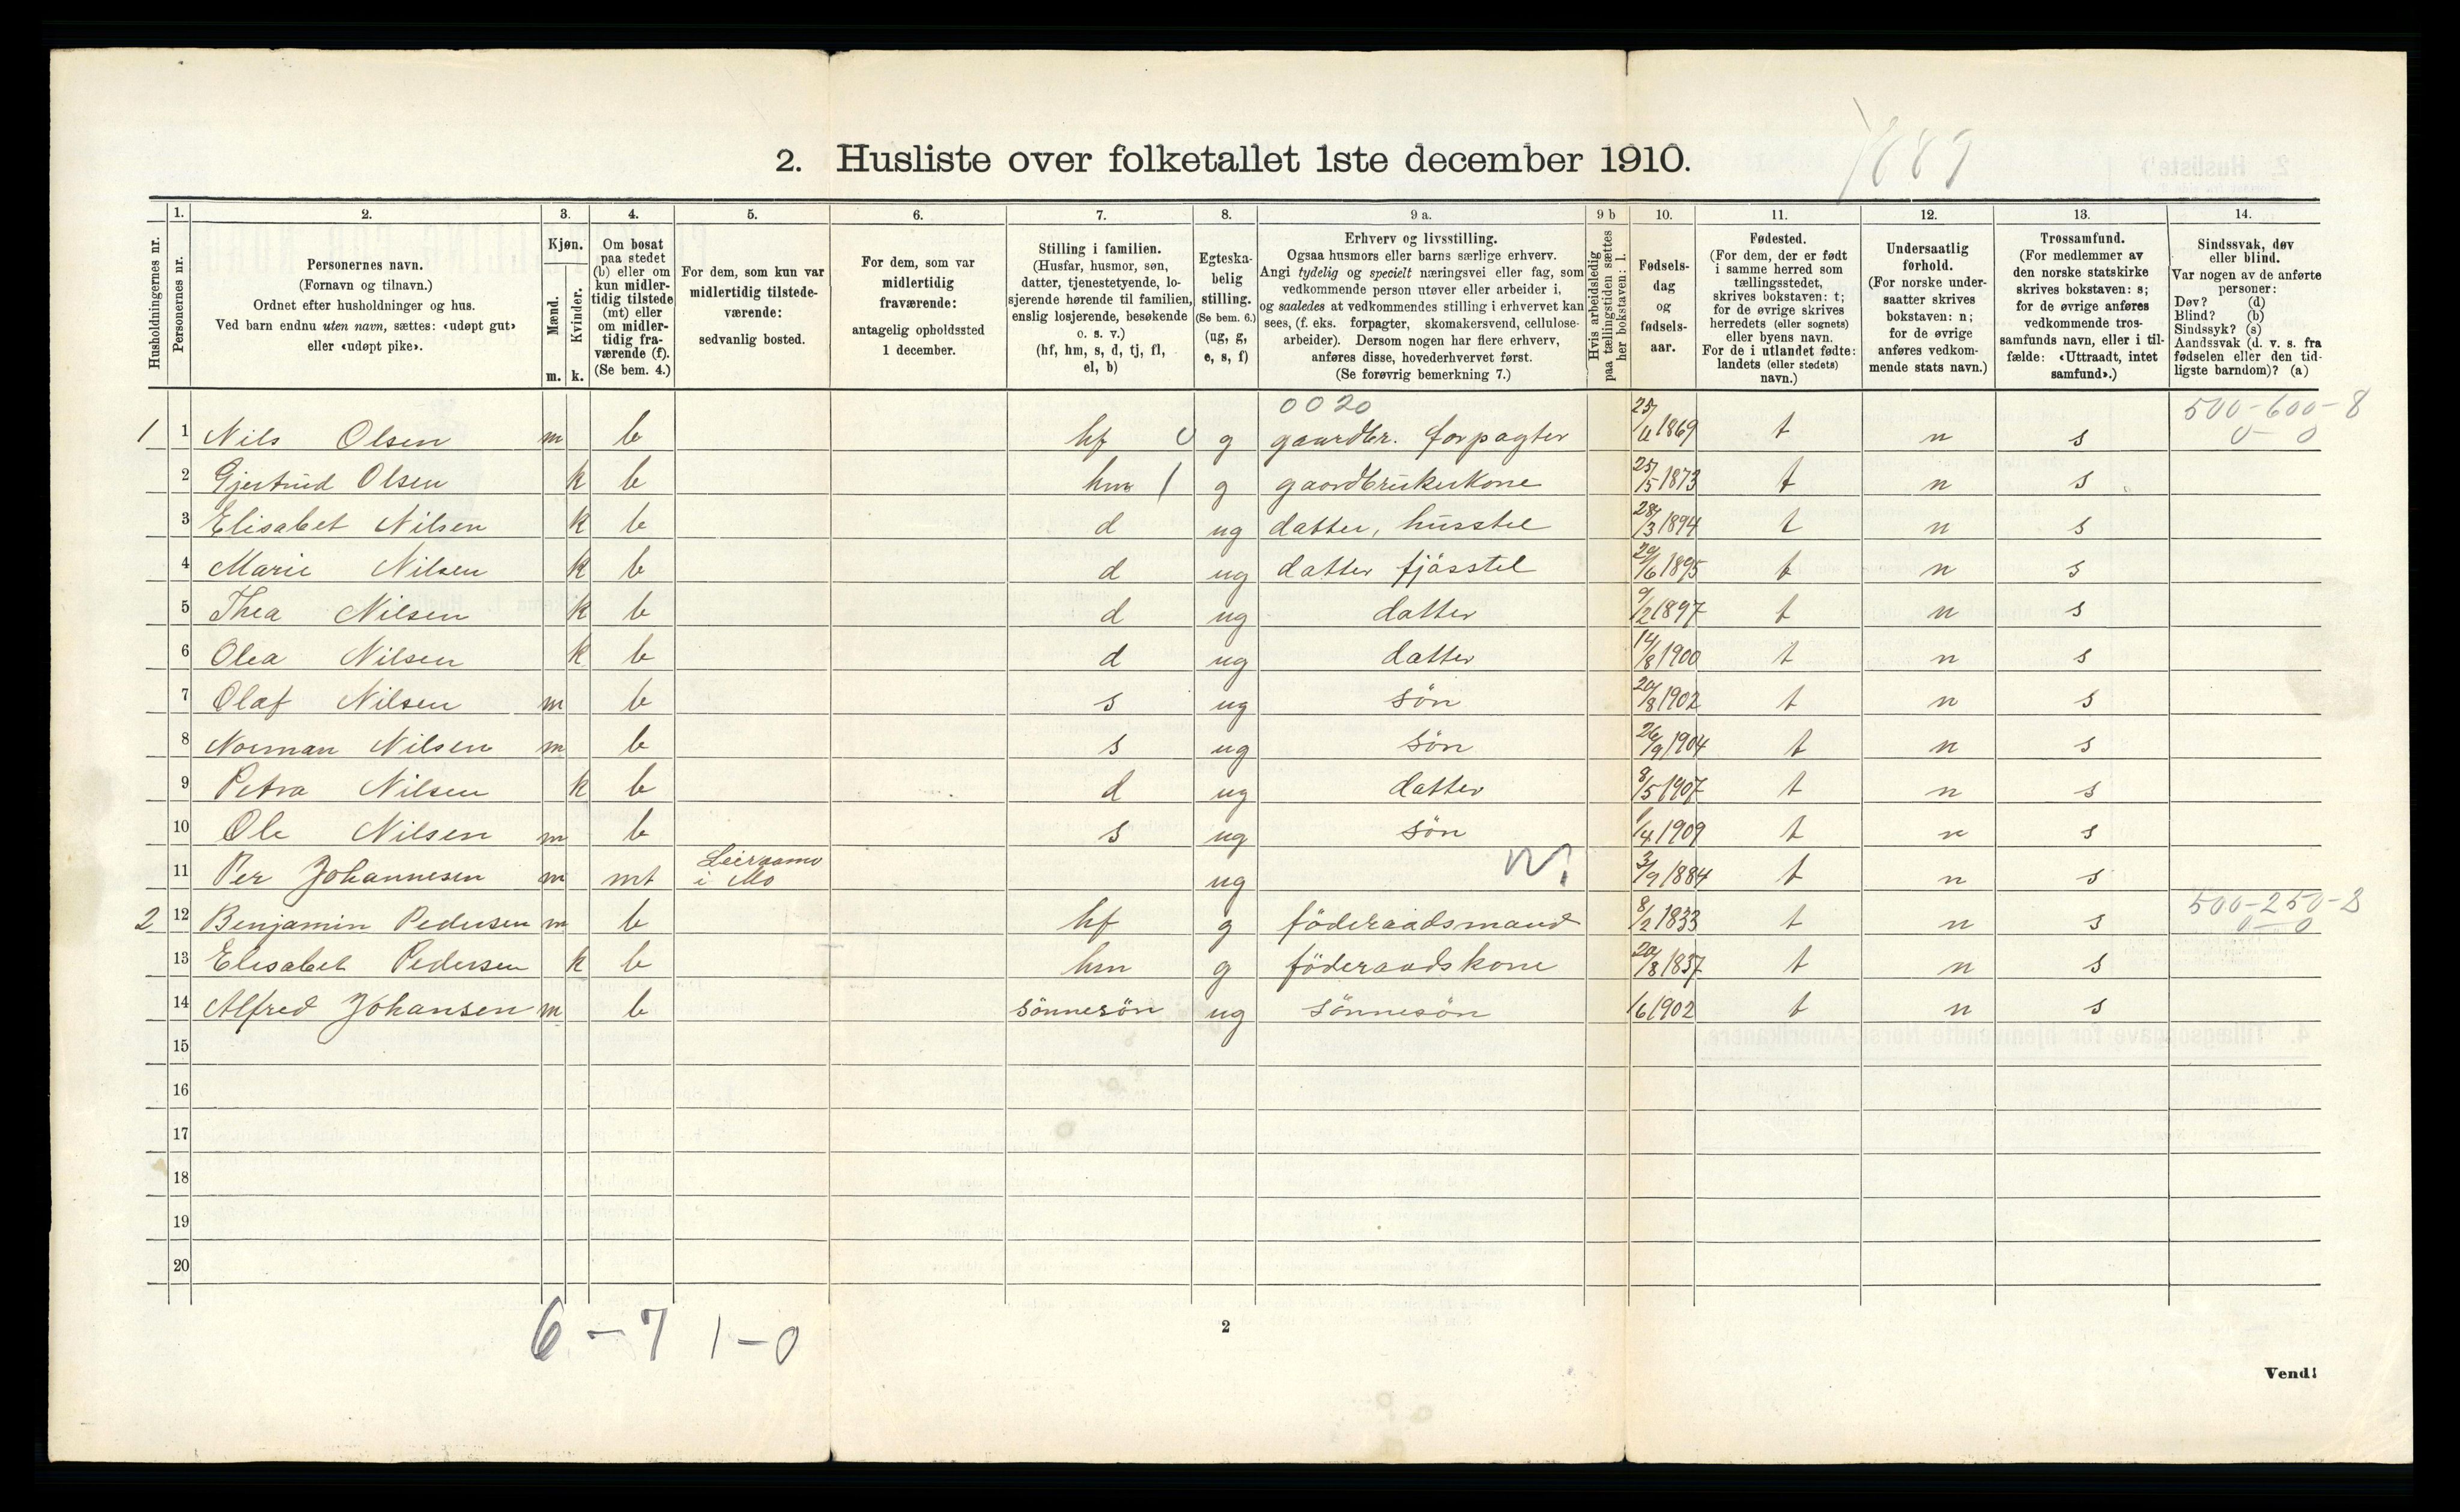 2. Husliste over folketallet 1ste december 1910.
Husholdningernes nr.
1.
Personernes nr.
2.
Personernes navn.
(Fornavn og tilnavn.)
Ordnet efter husholdninger og hus.
Ved barn endnu uten navn, sættes: «udøpt gut»
eller «udøpt pike».
3.
Kjøn.
Mænd.
Kvinder.
m.
k.
4.
Om bosat
paa stedet
(b) eller om
kun midler-
tidig tilstede
(mt) eller
om midler-
tidig fra-
værende (f).
(Se bem. 4.)
5.
For dem, som kun var
midlertidig tilstede-
værende:
sedvanlig bosted.
6.
For dem, som var
midlertidig
fraværende:
antagelig opholdssted
1 december.
7.
Stilling i familien.
(Husfar, husmor, søn,
datter, tjenestetyende, lo-
sjerende hørende til familien,
enslig losjerende, besøkende
o. s. v.)
(hf, hm, s, d, tj, fl,
el, b)
8.
Egteska-
belig
stilling.
(Se bem. 6.)
(ug, g,
e, s, f)
9 a.
Erhverv og livsstilling.
Ogsaa husmors eller barns særlige erhverv.
Angi tydelig og specielt næringsvei eller fag, som
vedkommende person utøver eller arbeider i,
og saaledes at vedkommendes stilling i erhvervet kan
sees, (f. eks. forpagter, skomakersvend, cellulose-
arbeider). Dersom nogen har flere erhverv,
anføres disse, hovederhvervet først.
(Se forøvrig bemerkning 7.)
9 b
Hvis arbeidsledig
paa tællingstiden sættes
her bokstaven: l.
10.
Fødsels-
dag
og
fødsels-
aar.
11.
Fødested.
(For dem, der er født
i samme herred som
tællingsstedet,
skrives bokstaven: t;
for de øvrige skrives
herredets (eller sognets)
eller byens navn.
For de i utlandet fødte:
landets (eller stedets)
navn.)
12.
Undersaatlig
forhold.
(For norske under-
saatter skrives
bokstaven: n;
for de øvrige
anføres vedkom-
mende stats navn.)
13.
Trossamfund.
(For medlemmer av
den norske statskirke
skrives bokstaven: s;
for de øvrige anføres
vedkommende tros-
samfunds navn, eller i til-
fælde: «Uttraadt, intet
samfund».)
14.
Sindssvak, døv
eller blind.
Var nogen av de anførte
personer:
Døv? (d)
Blind? (b)
Sindssyk? (s)
Aandssvak (d. v. s. fra
fødselen eller den tid-
ligste barndom)? (a)
0020 500-600-8
1 1 Nils Olsen m b hf 0 g gaardbr. forpagter 25/4 1869 t n s 0-0
2 Gjertrud Olsen k b hm 1 g gaardbrukerkone 25/5 1873 t n s
3 Elisabet Nilsen k b d ug datter, husstel 28/3 1894 t n s
4 Marie Nilsen k b d ug datter fjösstel 29/6 1895 t n s
5 Thea Nilsen k b d ug datter 9/2 1897 t n s
6 Olea Nilsen k b d ug datter 14/8 1900 t n s
7 Olaf Nilsen m b s ug sön 20/8 1902 t n s
8 Norman Nilsen m b s ug sön 26/9 1904 t n s
9 Petra Nilsen k b d ug datter 8/5 1907 t n s
10 Ole Nilsen m b s ug sön 1/4 1909 t n s
11 Per Johannesen m mt i Mo ug 3/9 1884 t n s
500-250-3
2 12 Benjamin Pedersen m b hf g föderaadsmand 8/2 1833 t n s 0-0
13 Elisabet Pedersen k b hm g föderaadskone 20/8 1837 t n s
14 Alfred Johansen m b sönnesön ug sönnesön 1/6 1902 t n s
15
16
17
18
19
20
6-7 1-0
2
Vend!